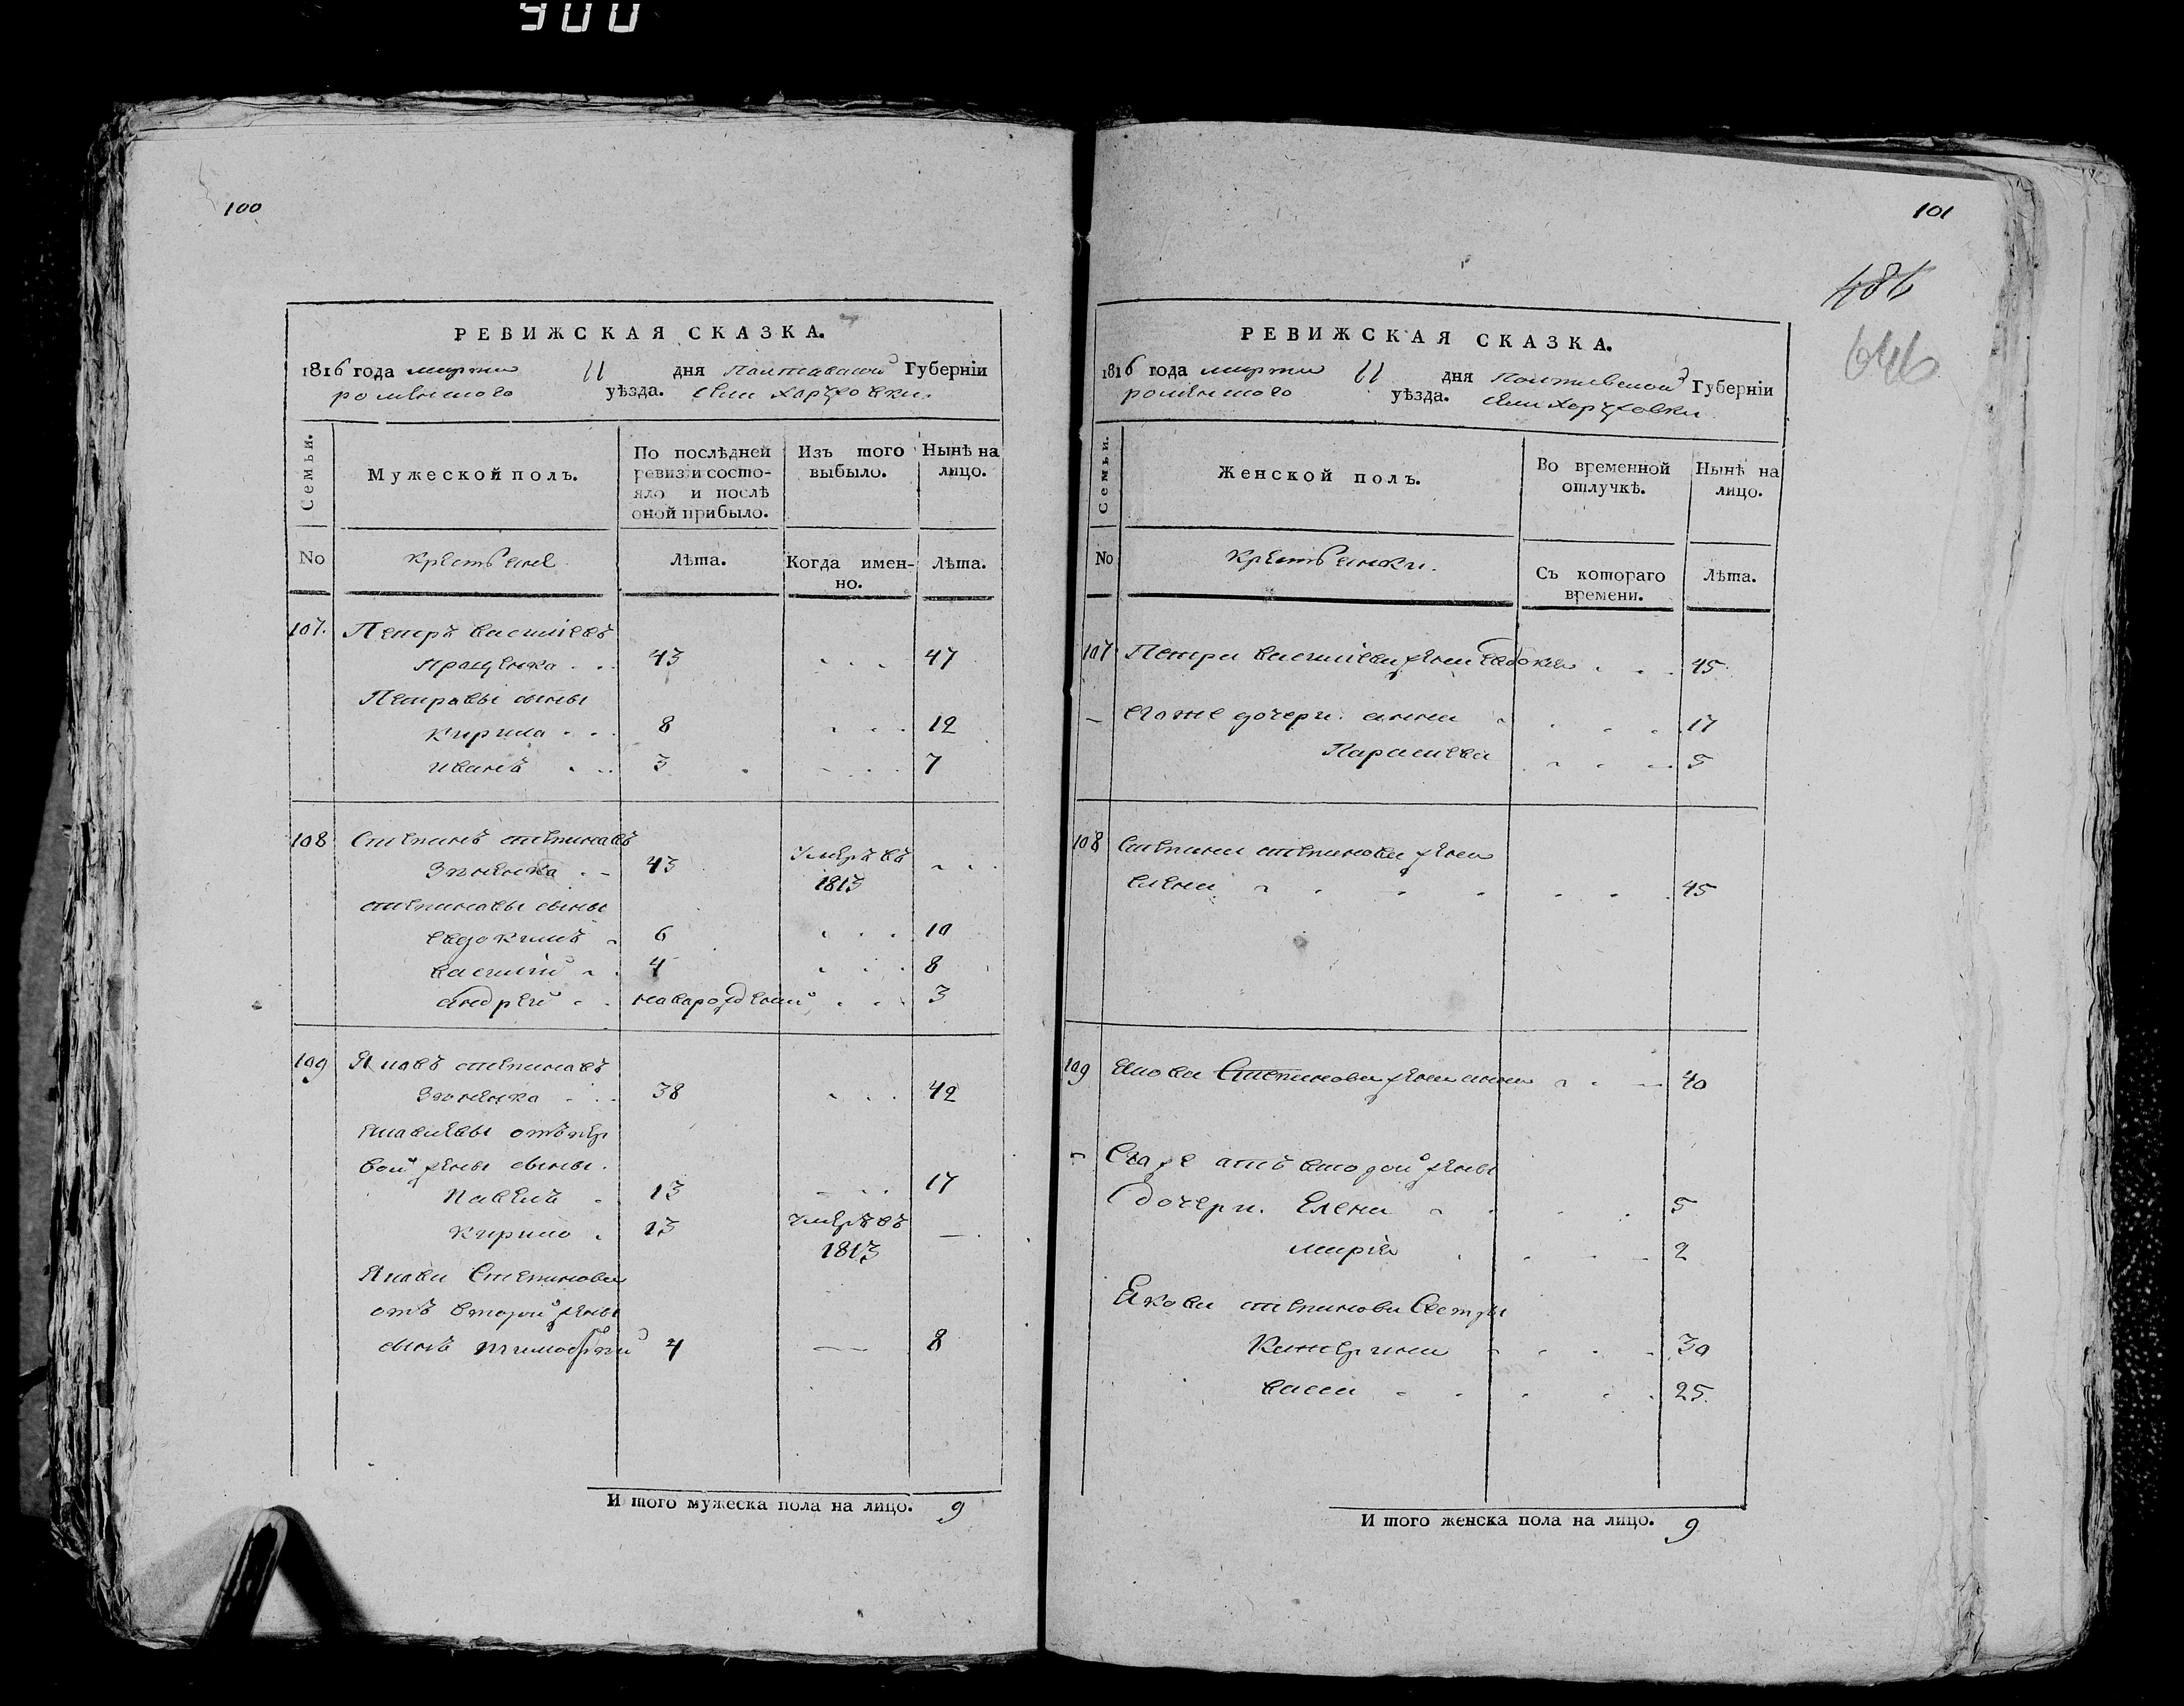 900
100
РЕВИЖСКАЯ СКАЗКА.
1816 года марта 11 дня Полтавской Губерніи
роменского уѣзда. села
Семьи.
Мужеской полъ.
По послѣдней ревизіи состояло и послѣ оной прибыло.
Изъ того выбыло.
Нынѣ на лицо.
No
Крестьяне
Лѣта.
Когда именно.
Лѣта.
107. Петръ василіевъ
43 47
Петровы сыны
кирила 8 12
иванъ 3 7
108 Степанъ степановъ
43 умеръ въ
1813
степановы сыны
евдокимъ 6 10
василій 4 8
андрей новорожденій 3
109 Яковъ степановъ
38 42
отъ пер
вой жены сыны.
павелъ 13 17
кирило 13 умеръ въ
1813 —
Якова Степанова
отъ второй жены
сынъ тимофѣй 4 — 8
И того мужеска пола на лицо. 9
101
486
646
РЕВИЖСКАЯ СКАЗКА.
1816 года марта 11 дня Полтавской Губерніи
роменского уѣзда. села
Семьи.
Женской полъ.
Во временной отлучкѣ.
Нынѣ на лицо.
No
Крестьянки.
Съ котораго времени.
Лѣта.
107 Петра василіева жена евдокия 45
— его же дочери. анна 17
Параскева 5
108 Степана степанова жена
елена 45
109 Якова Степанова жена анна 40
Его же отъ второй жены
дочери. Елена 5
марія 2
Якова степанова Сестры
Катерина 30
васса 25.
И того женска пола на лицо. 9